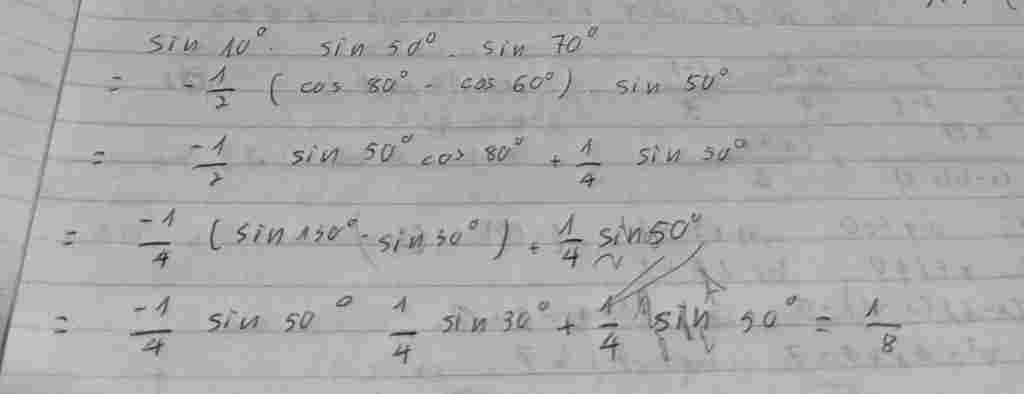 sin 10°. sin 50°. sin 70°
= -1/2 (cos 80° - cos 60°). sin 50°
= -1/2 sin 50° cos 80° + 1/4 sin 50°
= -1/4 (sin 130° - sin 30°) + 1/4 sin 50°
= -1/4 sin 50° 1/4 sin 30° + 1/4 sin 50° = 1/8